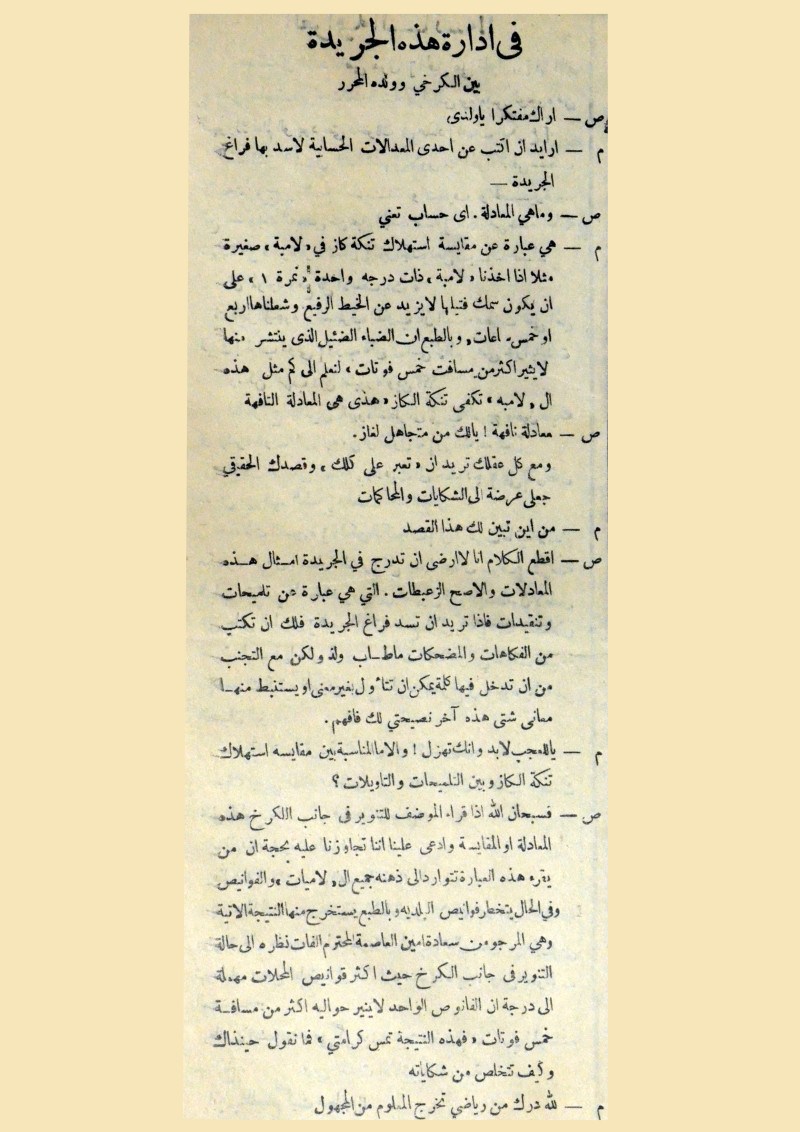 في ادارة هذه الجريدة
بين الكرخي وولده المحرر
ص — اراك مفتكرا ياولدى
م — ارايد ان اكتب عن احدى المعدالات الحسابية لاسد بها فراغ
الجريدة —
ص — وماهي المعادلة . اى حساب تعني
م — هي عبارة عن مقايسة استهلاك تنكة كاز في « لامبة » صغيرة
مثلا اذا اخذنا « لامبة » ذات درجه واحدة « نمرة ١ » على
ان يكون سمك فتيلها لايزيد عن الخيط الرفيع وشعلناها اربع
او خمس ساعات ، وبالطبع ان الضياء الضئيل الذى ينتشر منها
لايثير اكثر من مسافت خمس فوتات » لنعلم الى كم مثل هذه
ال « لامبه » تكفى تنكة الكاز « هذى هي المعادلة التافهة
ص — معادلة تافهة ! يالك من متجاهل لغاز .
ومع كل عقلك تريد ان « تعبر على كلك » وقصدك الحقيقي
جعلي عرضة الى الشكايات والمحاكمات
م — من اين تبين لك هذا القصد
ص — اقطع الكلام انا لاارضى ان تدرج في الجريدة امثال هذه
المعادلات والاصح الزعبطات . التي هي عبارة عن تلميحات
وتنقيدات فاذا تريد ان تسد فراغ الجريدة فلك ان تكتب
من الفكاهات والمضحكات ماطاب ولذ ولكن مع التجنب
من ان تدخل فيها كلمة يمكن ان تتأول بغير معنى او يستنبط منها
معانى شتى هذه آخر نصيحتي لك فافهم .
م — ياللعجب لابد وانك تهزل ! والا ما المناسبة بين مقايسه استهلاك
تنكة الكاز وبين التلميحات والتاويلات ؟
ص — فسبحان الله اذا قراء الموضف للتنوير في جانب االكرخ هذه
المعادلة او المقايسة وادعى علينا اننا تجاوزنا عليه بحجة ان من
يقرء هذه العبارة تتوارد الى ذهنه جميع ال « لامبات » والفوانيص
وفي الحال يتخطر فوانيص البلديه وبالطبع يستخرج منها النتيجة الاتية
وهي المرجو من سعادة امين العاصمة المحترم الفات نظره الى حالة
التنوير في جانب الكرخ حيث اكثر قوانيص المحلات مهملة
الى درجة ان الفانوص الواحد لاينير حواليه اكثر من مسافة
خمس فوتات « فهذه النتيجة تمس كرامتي » فما نقول حينذاك
وكيف نتخلص من شكاياته
م — لله درك من رياضي تخرج المعلوم من المجهول